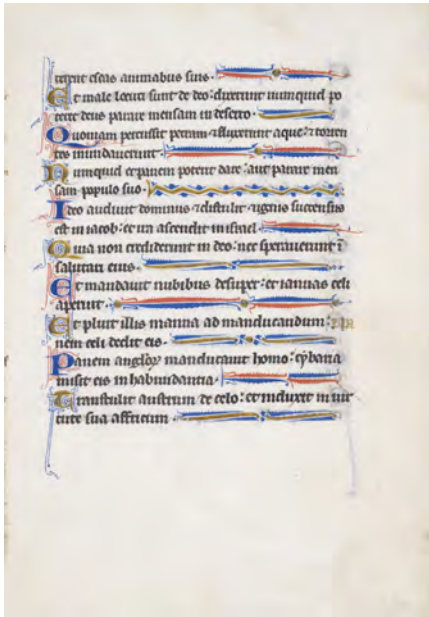 terent escas animabus suis.
Et male locuti sunt de deo: dixerunt numquid po
terit deus parare mensam in deserto.
Quoniam percussit petram: & fluxerunt aque: & torren
tes inundaverunt.
Numquid et panem poterit dare: aut parare men
sam populo suo.
Ideo audivit dominus & distulit: & ignis succensus
est in iacob: et ira ascendit in israel.
Quia non crediderunt in deo: nec speraverunt ī
salutari eius.
Et mandavit nubibus desuper: et ianuas celi
aperuit.
Et pluit illis manna ad manducandum: pa
nem celi dedit eis.
Panem angloꝝ manducavit homo: cybaria
misit eis in habundantia.
Transtulit austrum de celo: et induxit in vir
tute sua affricum.